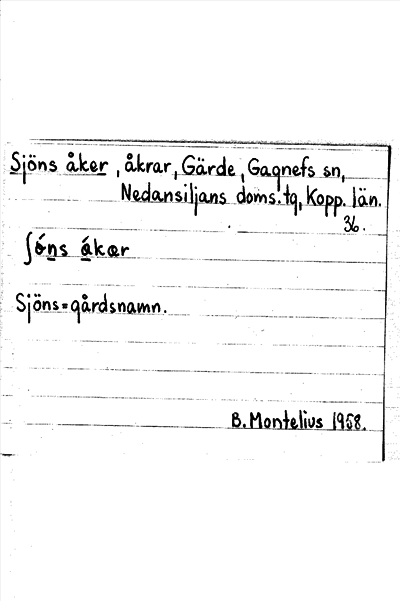 Sjöns åker, åkrar, Gärde, Gagnefs sn,
Nedansiljans doms.tg, Kopp. län.
36.
ʃóns ákær
Sjöns = gårdsnamn.
B. Montelius 1958.